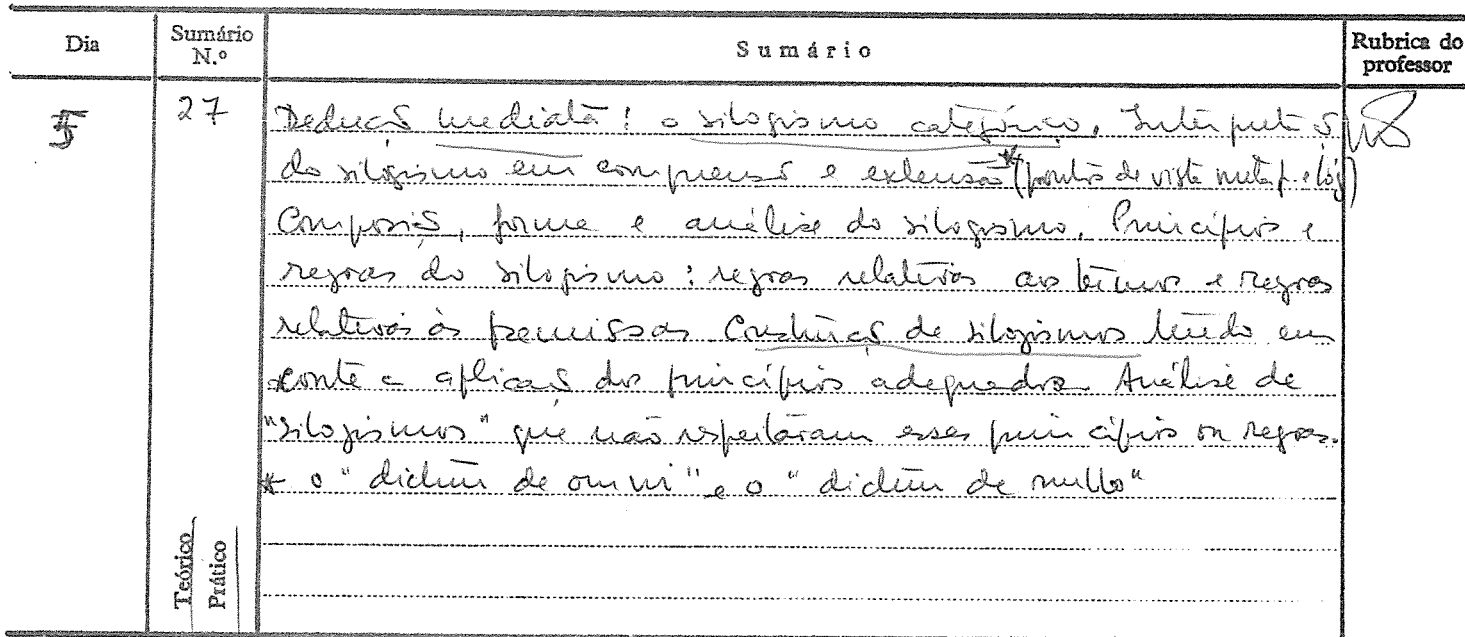 Dia
Sumário N.º
Sumário
Rubrica do professor
5
27
Dedução mediata: o silogismo categórico. Interpretação
do silogismo em compreensão e extensão* (pontos de vista metaf. e lóg)
Composição, forma e análise do silogismo. Princípios e
regras do silogismo: regras relativas aos termos e regras
relativas às premissas Construção de silogismos tendo em
conta a aplicação dos princípios adequados. Análise de
"silogismos" que não respeitaram esses princípios ou regras.
* o "dictum de omni" e o "dictum de nullo"
Teórico
Prático